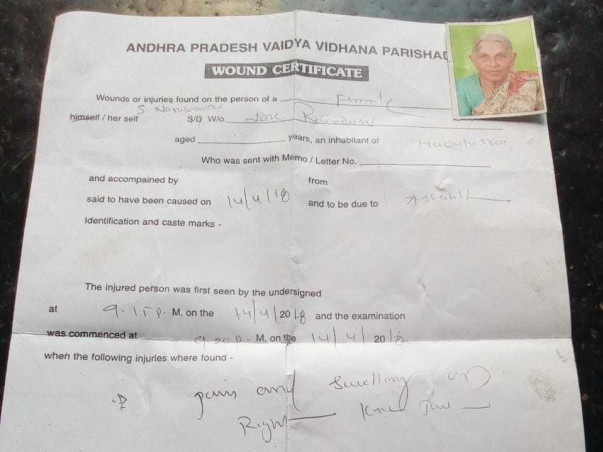 ANDHRA PRADESH VAIDYA VIDHANA PARISHAD
WOUND CERTIFICATE
Wounds or injuries found on the person of a
himself / her self S/D W/o
aged years, an inhabitant of
Who was sent with Memo / Letter No.
and accompained by from
said to have been caused on 14/4/18 and to be due to Assault
Identification and caste marks -
The injured person was first seen by the undersigned
at 9.15 P. M. on the 14/4/2018 and the examination
was commenced at 9.20 P. M. on the 14/4/2018
when the following injuries where found -
pain and swelling on
Right knee